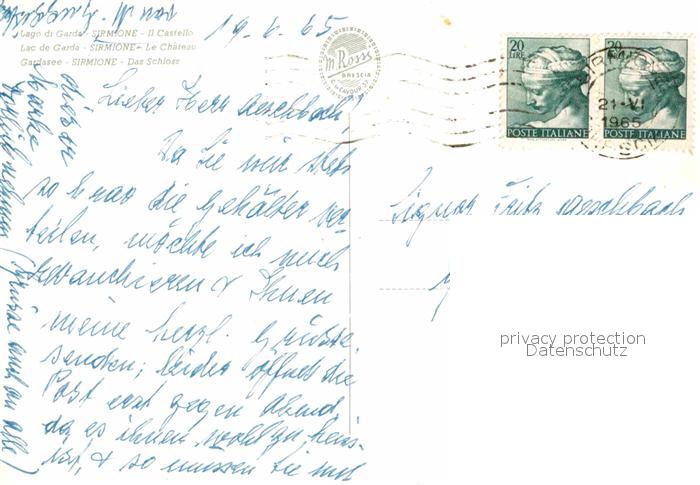 Lago di Garda - SIRMIONE - Il Castello
Lac de Garda - SIRMIONE - Le Château
Gardasee - SIRMIONE - Das Schloss
19.6.65
m. Ross
BRESCIA
C. CAVOUR
20 LIRE
POSTE ITALIANE
20 LIRE
POSTE ITALIANE
21-VI
1965
Lieber Herr Aeschbach,
Da Sie mir stets
so brav die Gehälter ver-
teilen, möchte ich mich
revanchieren & Ihnen
meine herzl. Grüsse
senden; leider öffnet die
Post erst gegen Abend,
da es ihnen wohl zu heiss
ist, & so müssen Sie mit
dieser
Marke
vorlieb nehmen
(Grüsse auch an alle)
Signor Fritz Aeschbach
privacy protection
Datenschutz